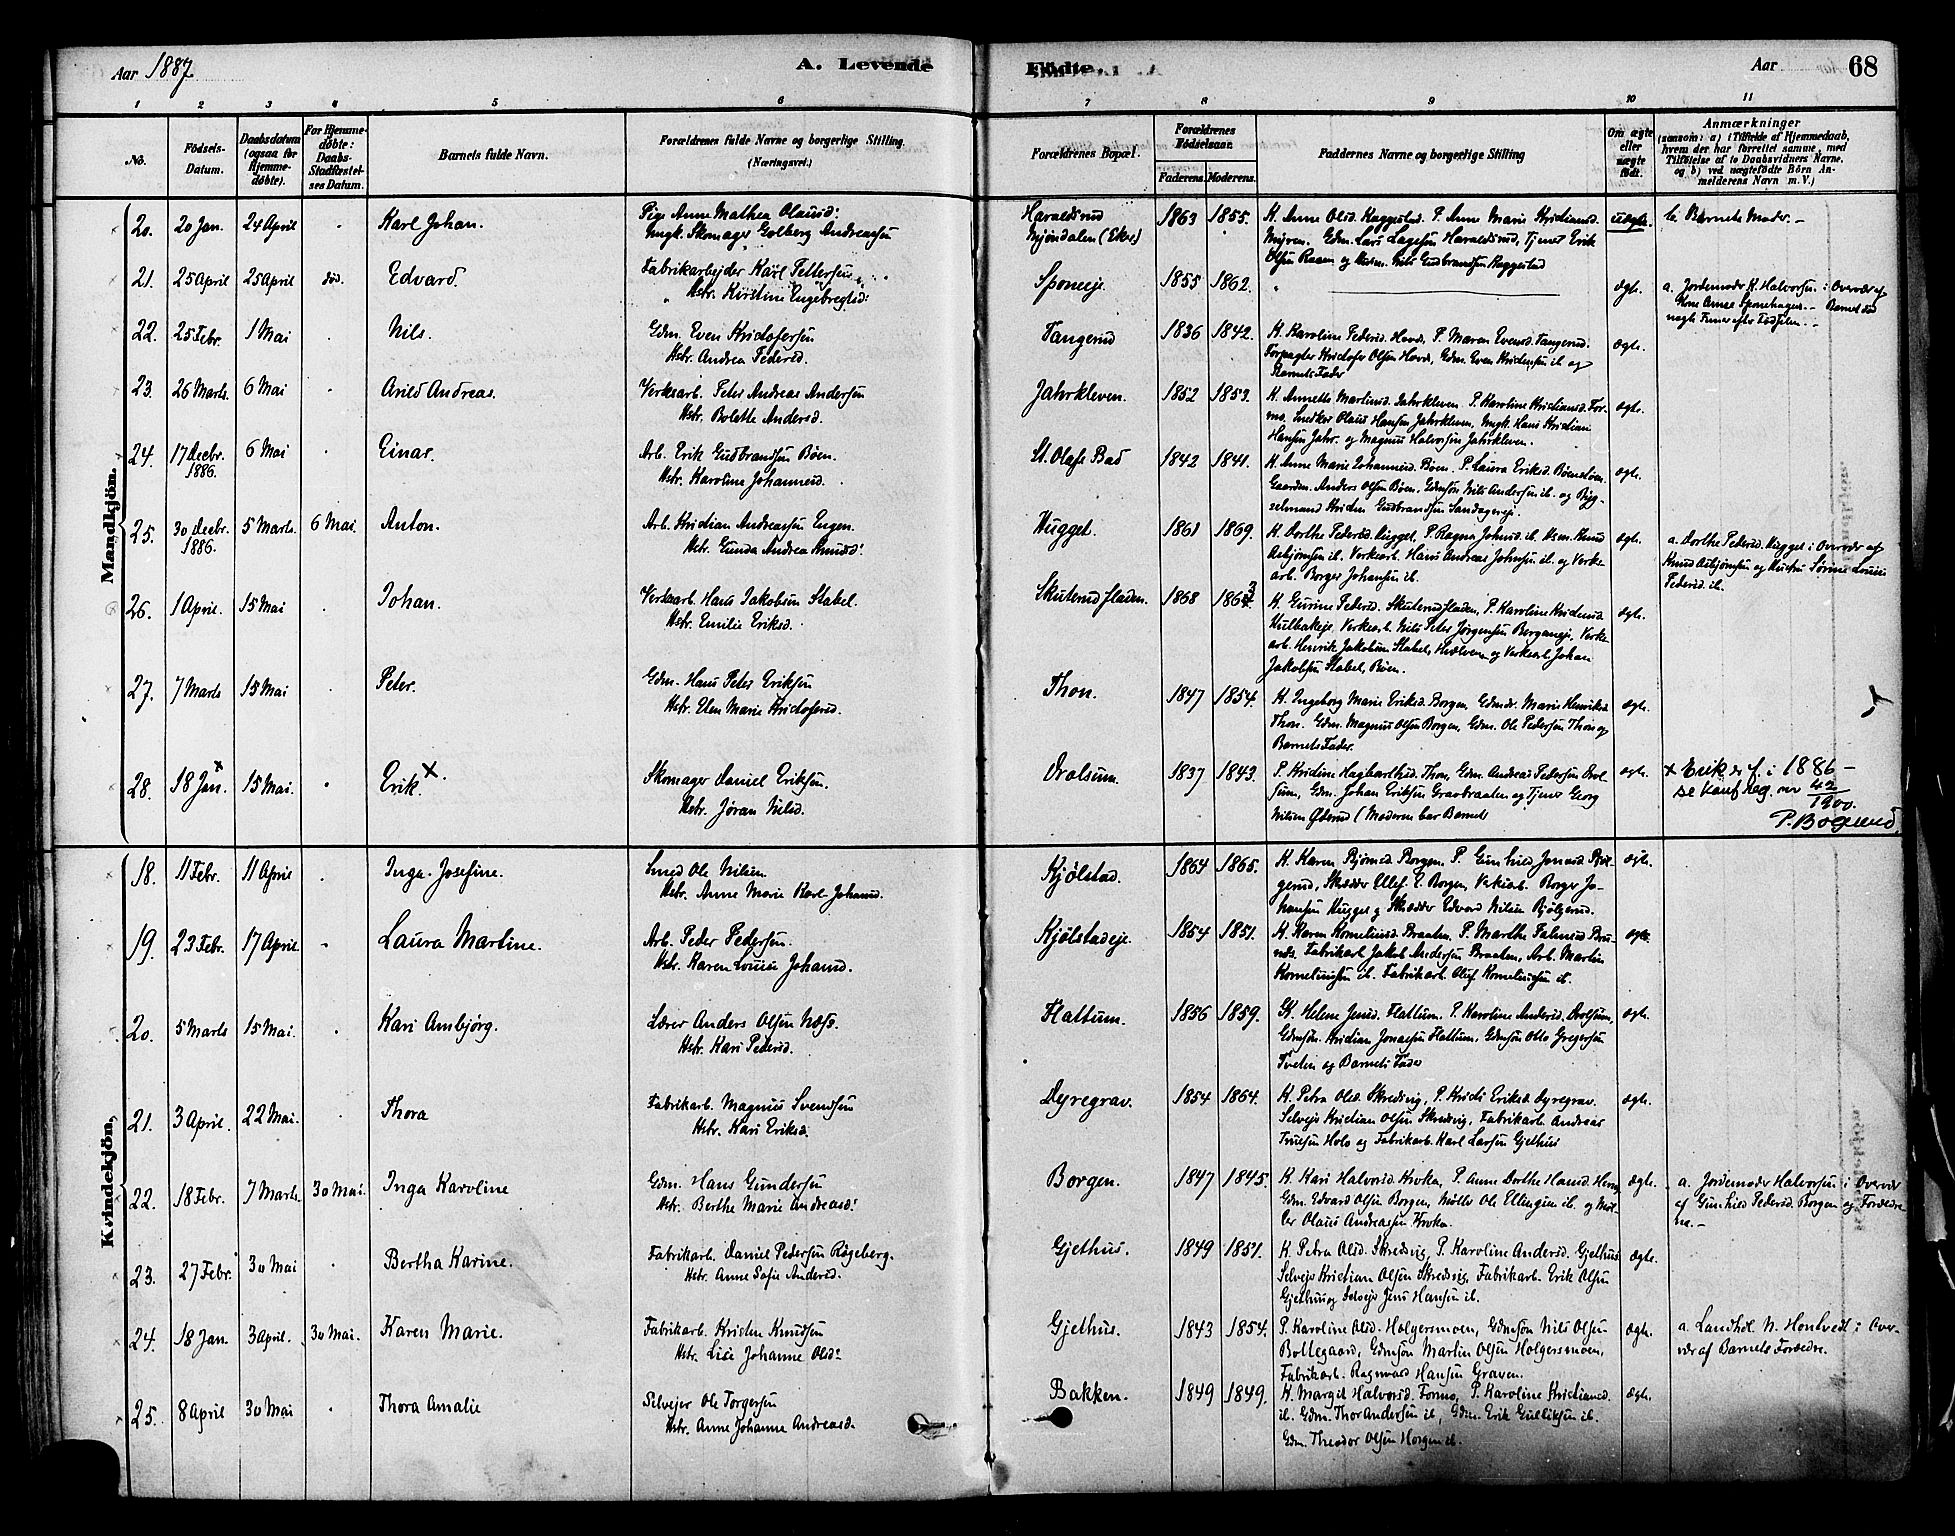 Aar 1887.
A. Levende
Fødte.
Aar
68
1 2 3 4 5 6 7 8 9 10 11
No.
Fødsels-Datum.
Daabsdatum (ogsaa for Hjemme-døbte).
For Hjemme-døbte: Daabs-Stadfæstel-ses Datum.
Barnets fulde Navn.
Forældrenes fulde Navne og borgerlige Stilling.
(Næringsvei.)
Forældrenes Bopæl.
Forældrenes Fødselsaar.
Faderens. Moderens.
Faddernes Navne og borgerlige Stilling
Om ægte eller uægte født.
Anmærkninger
(saasom: a) i Tilfælde af Hjemmedaab,
hvem der har forrettet samme, med
Tilføielse af to Daabsvidners Navne,
og b) ved uægtefødte Børn An-
melderens Navn m. V.)
Mandkjön.
20. 20 Jan. 24 April Karl Johan. Pige Anne Mathea Olausd:
Ungk. Skomager Golberg Andreassen
Haraldsrud
Mjøndalen (Eker) 1863 1855. K. Anne Olsd. Haggestad. P. Anne Marie Kristiansd.
Myren. Gdm. Lars Lagesen Haraldsrud, Tjener Erik
Olsen Raaen og Husm. Nils Gudbrandsen Haggestad
uægte. b. Barnets Moder.
21. 25 April 25 April død. Edvard. Fabrikarbejder Karl Pettersen
Hstr. Kirstine Engebregtsd:
Sponeje. 1855 1862. ægte. a. Jordemoder K. Halvorsen i Overvær af
Kone Anne Sponehagen. Barnet død
nogle Timer efter Fødselen.
22. 25 Febr. 1 Mai Nils. Gdm. Even Kristofersen
Hstr. Andrea Pedersd.
Tangerud 1836 1842. K. Karoline Pedersd. Hovd, P. Maren Evensd. Tangerud.
Forpagter Kristofer Olsen Hovd, Gdm. Even Kristensen ib. og
Barnets Fader
ægte.
23. 26 Marts. 6 Mai Arild Andreas. Verksarb. Peter Andreas Andersen
Hstr. Bolette Andersd.
Jahrkleven. 1852 1853. K. Annette Martinsd. Jahrkleven P. Karoline Kristiansd. For-
mo. Snedker Olaus Hansen Jahrkleven, Ungk. Hans Kristian
Hansen Jahr. og Magnus Halvorsen Jahrkleven.
ægte.
24. 17 Decbr. 1886. 6 Mai Einar. Arb. Erik Gudbrandsen Bøen.
Hstr. Karoline Johannesd.
St. Olafs Bad 1842 1841. K. Anne Marie Johannesd. Bøen. P. Laura Eriksd. Bøenstøen
Gaardm. Anders Olsen Bøen, Gdmsøn Nils Andersen ib. og Byg-
selmand Kristen Gudbrandsen Sandagereje.
ægte.
25. 30 Decbr. 1886. 5 Marts. 6 Mai Anton. Arb. Kristian Andreassen Engen.
Hstr. Gunda Andrea Knudsd:
Hugget. 1861 1869. K. Dorthe Pedersd. Hugget, P. Ragna Johnsd. ib. Husm. Knud
Asbjørnsen ib. Verksarb. Hans Andreas Johnsen ib. og Verks-
arb. Borger Johansen ib.
ægte. a. Dorthe Pedersd. Hugget i Overvær af
Knud Asbjørnsen og Hustru Sørine Louise
Pedersd. ib.
26. 1 April. 15 Mai Johan. Verksarb. Hans Jakobsen Stabel.
Hstr. Emilie Eriksd.
Skuterudfladen. 1868 1863 K. Gurine Pedersd. Skuterudfladen, P. Karoline Kristensd.
Hulbakeje, Verksarb. Nils Peter Jørgensen Borganeje, Verks-
arb. Henrik Jakobsen Stabel, Hælleven og Verksarb. Johan
Jakobsen Stabel, Bøen.
ægte.
27. 7 Marts 15 Mai Peter. Gdm. Hans Peter Eriksen
Hstr. Elen Marie Kristofersd.
Thon. 1847 1854. K. Ingeborg Marie Eriksd. Borgen, Gdmdr. Marie Henriksd.
Thon. Gdm. Magnus Olsen Borgen, Gdm. Ole Pedersen Thon og
Barnets Fader.
ægte.
28. 18 Jan. x 15 Mai. Erik. x Skomager Daniel Eriksen.
Hstr. Jøran Nilsd.
Drolsum. 1837 1843. P. Kristine Hagbarthsd. Thon, Gdm. Andreas Pedersen Drol-
sum, Gdm. Johan Eriksen Gravbraaten og Tjener Georg
Nilsen Øderud (Moderen bar Barnet
ægte. x Erik er f. i 1886 -
se Konf. reg. nr 42/1900.
P. Bogerud
Kvindekjön.
18. 11 Febr. 11 April Inga Josefine. Smed Ole Nilsen.
Hstr. Anne Marie Karl Johansd.
Kjølstad. 1864 1865. K. Karen Bjørnsd. Borgen. P. Gunhild Jonasd. Bjøl-
gerud, Skrædder Ellef E. Borgen, Verksarb. Borger Jo-
hansen Hugget og Skrædder Edvard Nilsen Bjølgerud.
ægte.
19. 23 Febr. 17 April. Laura Martine. Arb. Peder Pedersen.
Hstr. Karen Louise Johansd.
Kjølstadeje. 1854 1851. K. Karen Korneliusd. Braaten. P. Marthe
Fabrikarb. Jakob Andersen Braaten, Arb. Martin
Korneliussen ib. Fabrikarb. Oluf Korneliussen ib.
ægte.
20. 5 Marts 15 Mai. Kari Ambjørg. Lærer Anders Olsen Næss.
Hstr. Kari Pedersd.
Flattum. 1856 1859. GK. Helene Jensd. Flattum. P. Karoline Andersd. Drolsum,
Gdmsøn. Kristian Jonassen Flattum, Gdmsøn Otto Gregersen
Tveten og Barnets Fader
ægte.
21. 3 April. 22 Mai. Thora Fabrikarb. Magnus Svendsen
Hstr. Kari Eriksd.
Dyregrav. 1854 1864. K. Petra Olsd. Skredsvig, P. Kristi Eriksd. Dyregrav.
Selvejer Kristian Olsen Skredsvig, Fabrikarb. Andreas
Truesen Holo og Fabrikarb. Karl Larsen Gjethus
ægte.
22. 18 Febr. 7 Marts. 30 Mai. Inga Karoline Gdm. Hans Gundersen
Hstr. Berthe Marie Andreasd:
Borgen. 1847 1845. K. Kari Halvorsd. Kroka, P. Anne Dorthe Hansd.
Gdm. Edvard Olsen Borgen, Møller Ole Ellingsen ib. og Møl-
ler Olaus Andreassen Kroka.
ægte. a. Jordemoder Halvorsen i Overvær
af Gunhild Pedersd. Borgen og Forældre-
ne.
23. 27 Febr. 30 Mai Bertha Karine. Fabrikarb. Daniel Pedersen Røgeberg.
Hstr. Anne Sofie Andersd.
Gjethus. 1849 1851. K. Petra Olsd. Skredsvig, P. Karoline Andersd. Gjethus
Selvejer Kristian Olsen Skredsvig, Fabrikarb. Erik Olsen
Gjethus og Selvejer Jens Hansen ib.
ægte.
24. 18 Jan. 3 April. 30 Mai. Karen Marie. Fabrikarb. Kristen Knudsen
Hstr. Lise Johanne Olsd:
Gjethus. 1843 1854. P. Karoline Olsd. Holgersmoen, Gdmsøn Nils Olsen
Bottegaard, Gdmsøn Martin Olsen Holgersmoen,
Fabrikarb. Ragnvald Hansen Graven.
ægte. a. Landhdl. N. Hontvedt i Over-
vær af Barnets Forældre.
25. 8 April 30 Mai Thora Amalie Selvejer Ole Torgersen
Hstr. Anne Johanne Andreasd.
Bakken. 1849 1849. K. Margit Halvorsd. Formo, P. Karoline Kristiansd.
ib. Gdm. Thor Andersen ib, Gdm. Erik Gulliksen ib.
Gdm. Theodor Olsen Horgen ib.
ægte.